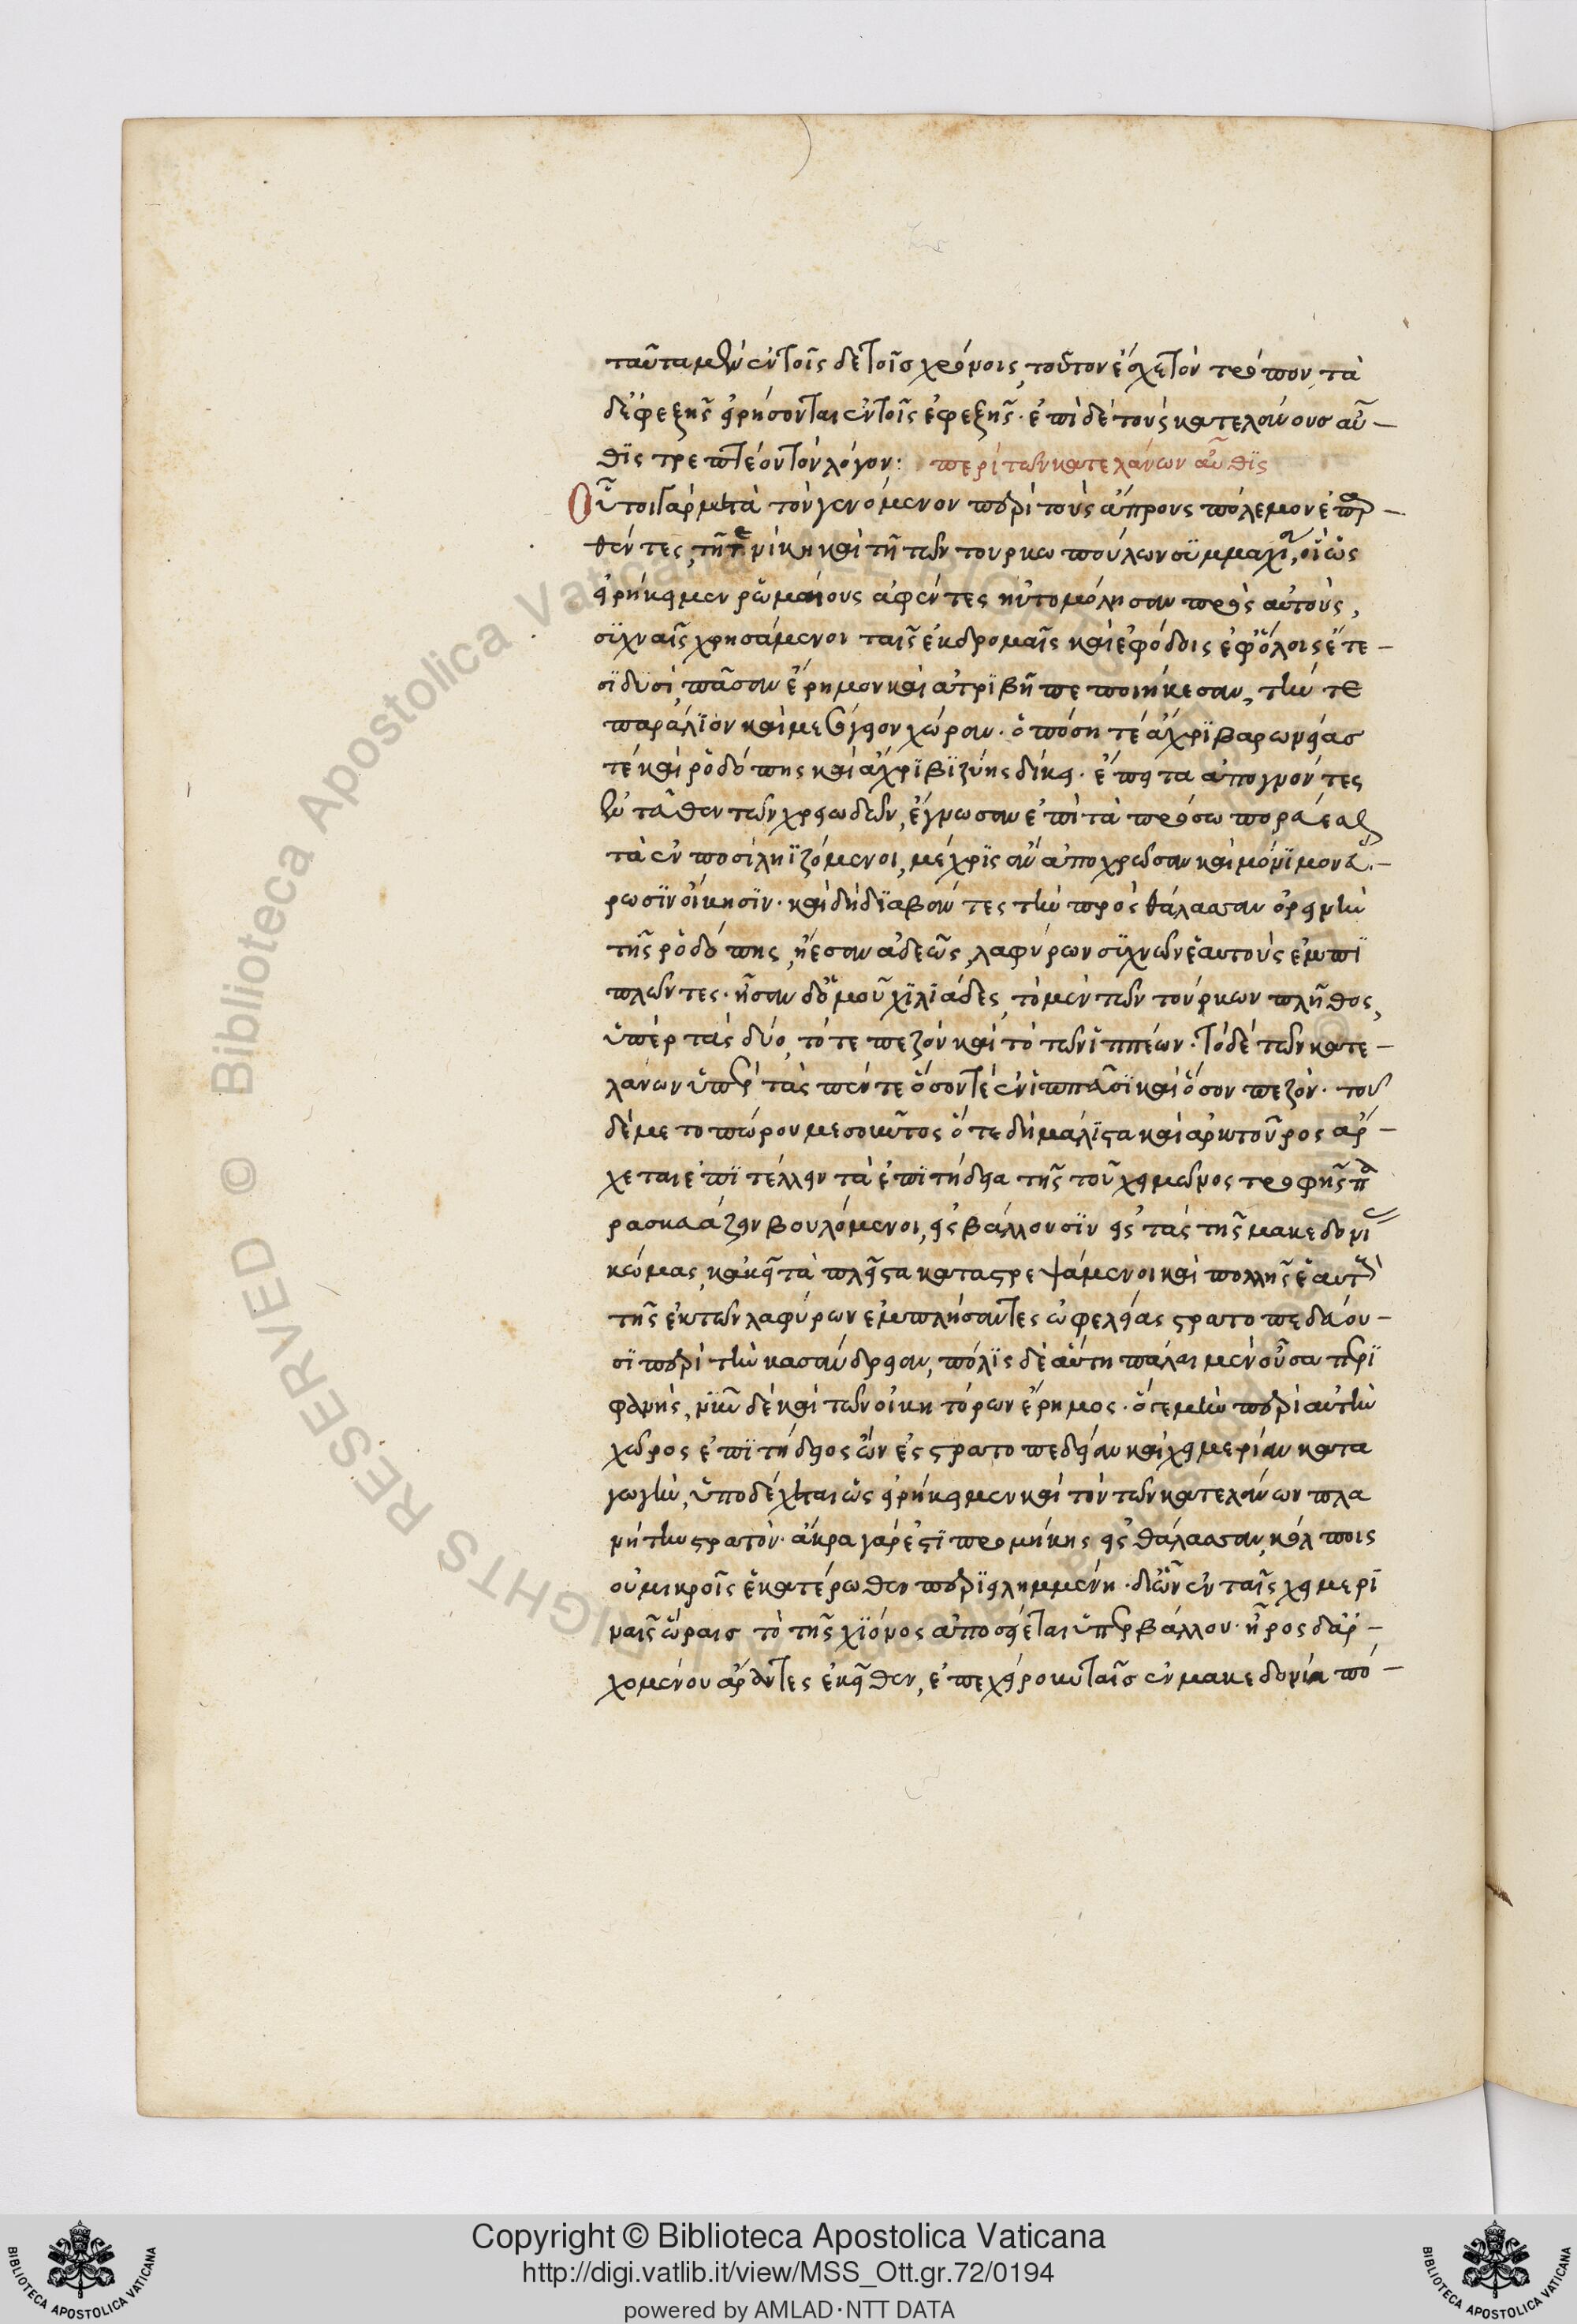 ταῦτα μὲν ἐν τοῖς δε τοῖσ χρόνοις, τοῦτον ἔσχε τὸν τρόπον, τὰ
δ' ἐφεξῆς εἰρήσονται ἐν τοῖς ἐφεξῆς. ἐπὶ δὲ τοὺς κατελάνουσ αὖ-
θϊς τρεπτέον τὸν λόγον: περὶ τῶν κατελάνων αὖθϊς
Οὗτοι γὰρ μετὰ τὸν γενόμενον περὶ τοὺς ἄπρους πόλεμον ἐπαρ-
θέντες, τῇ τε νίκῃ καὶ τῇ τῶν τουρκωπούλων συμμαχίᾳ, οἳ ὡς
εἰρήκειμεν ῥωμαίους ἀφέντες ηὐτομόλησαν πρὸς αὐτοὺς,
συχναῖς χρησάμενοι ταῖς ἐκδρομαῖς καὶ ἐφόδοις ἐφ' ὅλοις ἔτε-
σϊ δυσὶ, πᾶσαν ἔρημον καὶ ἀτρϊβῆ πεποιήκεσαν, τήν τε
παράλϊον καὶ μεσόγειον χώραν. ὁπόση τέ ἄχρϊ βαρωνείασ
τέ καὶ ῥοδόπης καὶ ἄχρϊ βϊζύης δίκει. ἔπειτα ἀπογνόντες
ἐνταῦθεν τῶν χρειωδῶν, ἔγνωσαν ἐπὶ τὰ πρόσω πορεύεσθαι
τὰ ἐν ποσὶ ληϊζόμενοι, μέχρϊς ἂν ἀποχρῶσαν καὶ μόνϊμον εὕ-
ρωσϊν οἴκησϊν. καὶ δὴ δϊαβάντες τὴν πρὸς θάλασσαν ὀρεινὴν
τῆς ῥοδόπης, ᾔεσαν ἀδεῶς, λαφύρων συχνῶν ἑαυτοὺς ἐμπϊ
πλῶντες. ἦσαν δ' ὁμοῦ χϊλϊάδες, τὸ μὲν τῶν τούρκων πλῆθος,
ὑπὲρ τὰς δύο, τό τε πεζὸν καὶ τὸ τῶν ἱππέων. τὸ δὲ τῶν κατε-
λάνων ὑπὲρ τὰς πέντε ὅσον τὲ ἐν ἱππεῦσϊ καὶ ὅσον πεζὸν. τοῦ
δὲ μετοπώρου μεσοῦντος ὅτε δὴ μάλϊστα καὶ ἀρκτοῦρος ἄρ-
χεται ἐπϊτέλλειν τὰ ἐπϊτήδεια τῆς τοῦ χειμῶνος τροφῆς πα
ρασκευάζειν βουλόμενοι, εἰσβάλλουσϊν εἰς τὰς τῆς μακεδονίας
κώμας, κἀκεῖ τὰ πλεῖστα καταστρεψάμενοι καὶ πολλῆς ἑαυτοὺς
τῆς ἐκ τῶν λαφύρων ἐμπλήσαντες ὠφελείας στρατοπεδεύου-
σϊ περὶ τὴν κασάνδρειαν, πόλϊς δὲ αὕτη πάλαι μὲν οὖσα περϊ
φανὴς, νῦν δὲ καὶ τῶν οἰκητόρων ἔρημος. ὅτε μὴν περὶ αὐτὴν
χῶρος ἐπϊτήδειος ὢν ἐς στρατοπεδείαν καὶ χειμερίαν κατα
γωγὴν, ὑποδέχεται ὡς εἰρήκειμεν καὶ τὸν τῶν κατελάνων πλα
νήτην στρατὸν. ἄκρα γάρ ἐστϊ προμήκης εἰς θάλασσαν, κόλποις
οὐ μικροῖς ἑκατέρωθεν περϊειλημμένη. δι' ὧν ἐν ταῖς χειμερϊ
ναῖς ὥραισ τὸ τῆς χϊόνος ἀποσείεται ὑπερβάλλον. ἦρος δ' ἀρ-
χομένου ἄραντες ἐκεῖθεν, ἐπεχείρουν ταῖσ ἐν μακεδονίᾳ πό-
Copyright © Biblioteca Apostolica Vaticana
http://digi.vatlib.it/view/MSS_Ott.gr.72/0194
powered by AMLAD·NTT DATA